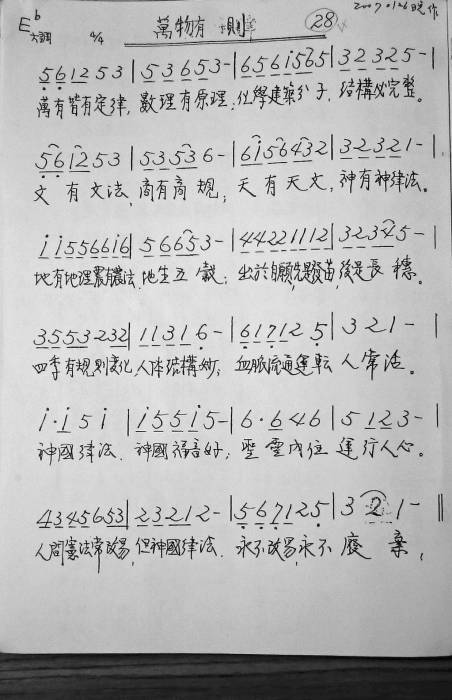 E♭ 大調 4/4 萬物有 則 28 2007.01.26 晚作
5 6 1 2 5 3 | 5 3 6 5 3 - | 6 5 6 i 5 6 5 | 3 2 3 2 5 - |
萬有皆有定律, 數理有原理; 化學建築分子, 結構必完整。
5 6 1 2 5 3 | 5 3 5 3 6 - | 6 i 5 6 4 3 2 | 3 2 3 2 1 - |
文有文法, 商有商規; 天有天文, 神有神律法。
i i 5 5 6 6 i 6 | 5 6 6 5 3 - | 4 4 2 2 1 1 1 2 | 3 2 3 4 5 - |
地有地理農有農法, 地生五穀; 出於自願先是發苗, 後是長穗。
3 5 5 3 2 3 2 | 1 1 3 1 6 - | 6 1 7 1 2 5 | 3 2 1 - |
四季有規則變化, 人体結構妙; 血脈流通運転人常活。
i · i 5 i | i 5 5 i 5 - | 6 · 6 4 6 | 5 1 2 3 - |
神國律法、神國福音好; 聖靈內住運行人心。
4 3 4 5 6 5 3 | 2 3 2 1 2 - | 5 6 7 1 2 5 | 3 2 1 - ‖
人間憲法常改易, 但神國律法、永不改易, 永不廢棄,